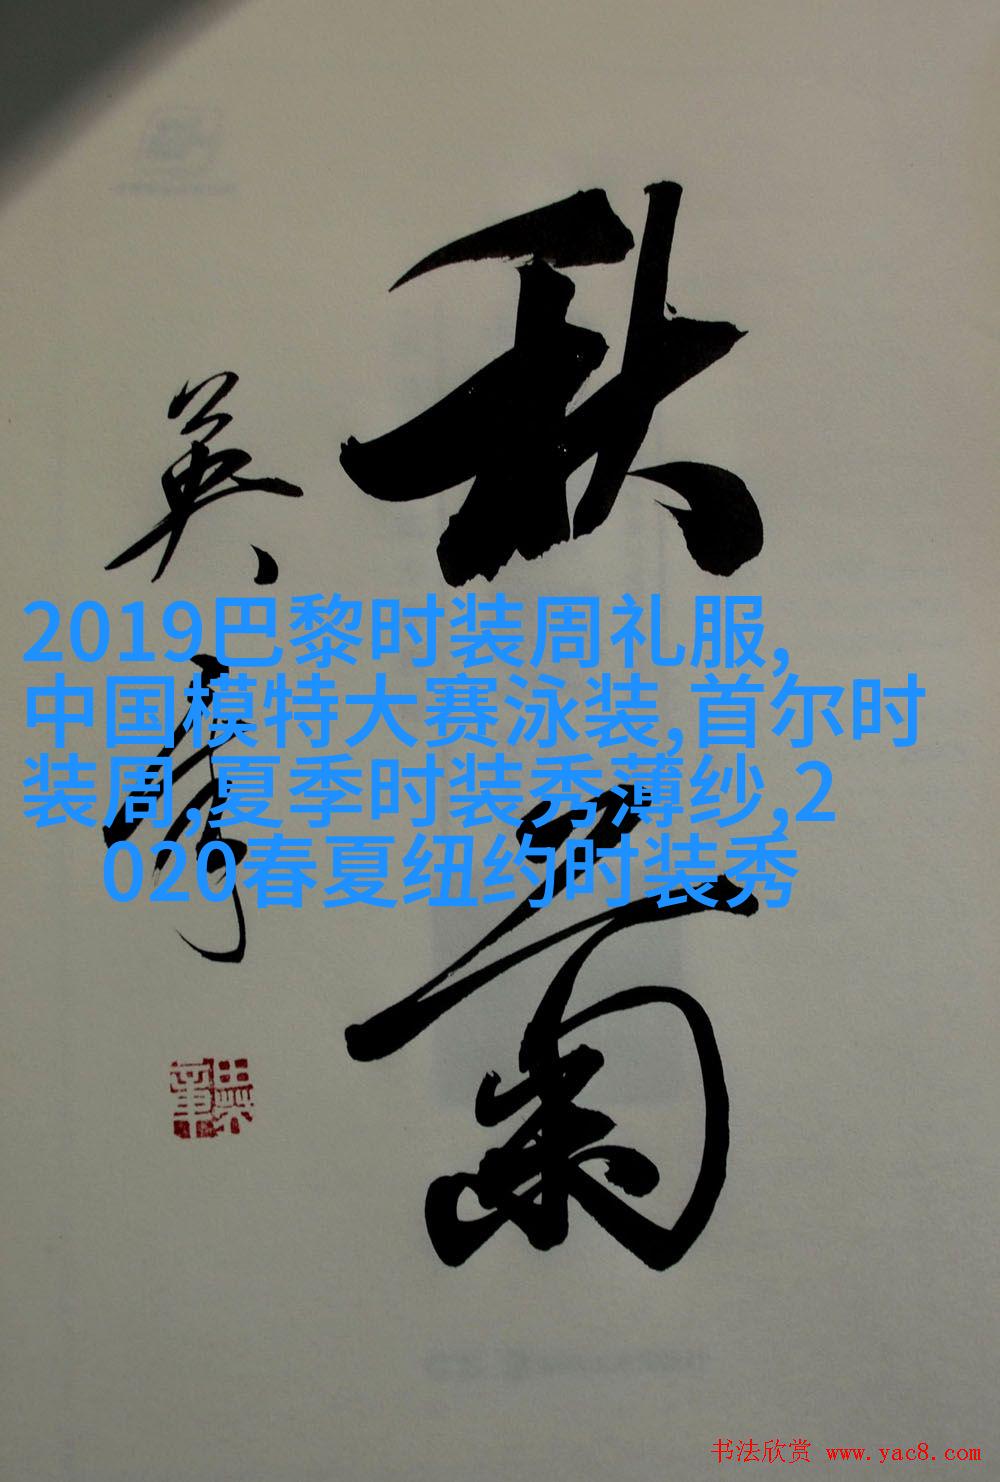 秋
英
2019巴黎时装周礼服,
中国模特大赛泳装,首尔时
装周,夏季时装秀薄纱,2
020春夏纽约时装秀
书法欣赏 www.yac8.com